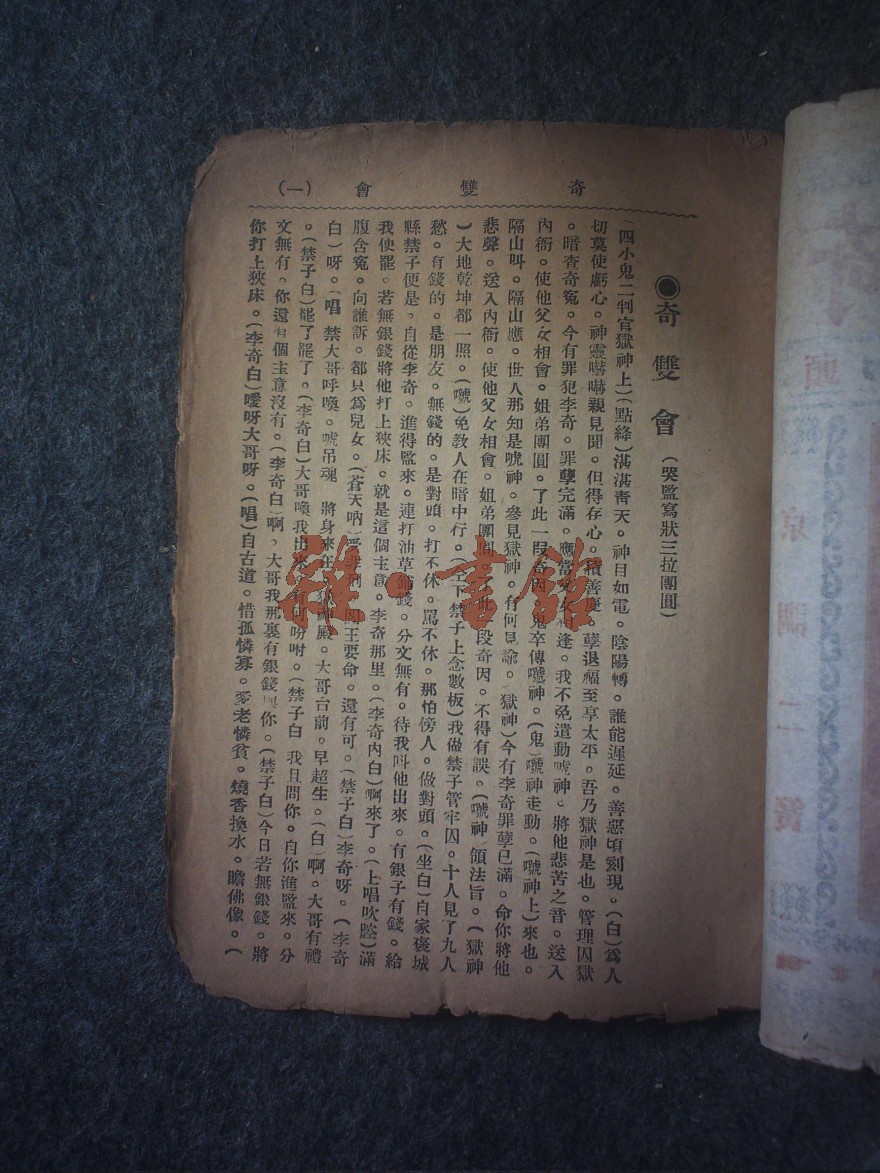 奇雙會 (一)
◉奇雙會(哭監寫狀三拉團圓)
(四小鬼二判官獄神上)(點絳)湛湛靑天。神目如電。陰陽轉。誰能遲延。善惡頃刻現。(白)爲人
切莫使虧心。神靈嚇嚇親見聞。但得存心。積善慶。孽退福至享太平。吾乃獄神是也。管理囚獄
。暗查奇寃。今有罪犯李奇。罪孽完滿。應當父女相逢。我不免遣動唬神。將他悲苦之音。送入
內衙。使他父女相會。姐弟團圓。了此一段奇因。鬼卒傳嚈神。(鬼)嚈神走動。(嚈神上)來也。
隔山呌。隔山應。世人那知是唬神。參見獄神。有何見諭。獄神)今有李奇罪孽已滿。命你將他
悲聲。送入內衙。使他父女相會。姐弟團圓。了此一段奇因。不得有誤。(嚈神)領法旨。(獄神
)大地乾坤都一照。(嚈)免教人在暗中行。下禁子上念數板)我做禁子管牢囚。十人見了九人
愁。有錢的。是朋友。無錢的。是對頭。打不休。罵不休。那怕傍人。做對頭。(坐白)自家褒城
縣禁子便是。自從李奇。進得監來。連打油草鋪錢。分文無有。待我呌他出來。有銀子有錢。給
我使罷。若無銀錢將他打上狹床。就是這個主意。李奇那里。(李奇內白)啊來了。(上唱吹腔)滿
腹含寃。向誰訴。都只爲兒女。(蒼天吶)受非刑。閻王要命。還有可。(禁子白)李奇呀。(李奇
白)呀。(唱 禁大哥呼喚。唬吊魂 將身來在 獄神殿。大哥台前。早超生。(白)啊。大哥有禮
。(禁子白)罷了罷了。(李奇白)大哥喚我出來。有何吩咐。(禁子白 我且問你。自你進監來。分
文無有。你還有個主意沒有。(李奇白)啊。大哥我那裏有銀錢與你。(禁子白)今日若無銀錢。將
你打上狹床。(李奇白)噯呀大哥呀。(唱)自古道。惜孤憐寡。愛老憐貧。燒香換水。瞻佛像。(
雜·書館
京調二簧